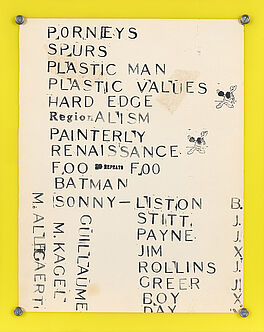 PORNEYS
SPURS
PLASTIC MAN
PLASTIC VALUES
HARD EDGE
RegionALISM
PAINTERLY
RENAISSANCE
FOO REPEATS FOO
BATMAN
SONNY-LISTON B.
STITT, J.
PAYNE. J.
JIM X
ROLLINS J.
GREER J.
BOY X
DAY
M. KAGEL
GUILLAUME